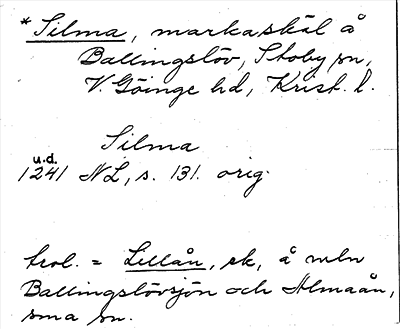 *Silma, markaskäl å
Ballingslöv, Stoby sn,
V. Göinge hd, Krist. l.
Silma
u.d.
1241 NL, s. 131. orig.
trol. = Lillån, sk, å mln
Ballingslövsjön och Almaån,
sma sn.